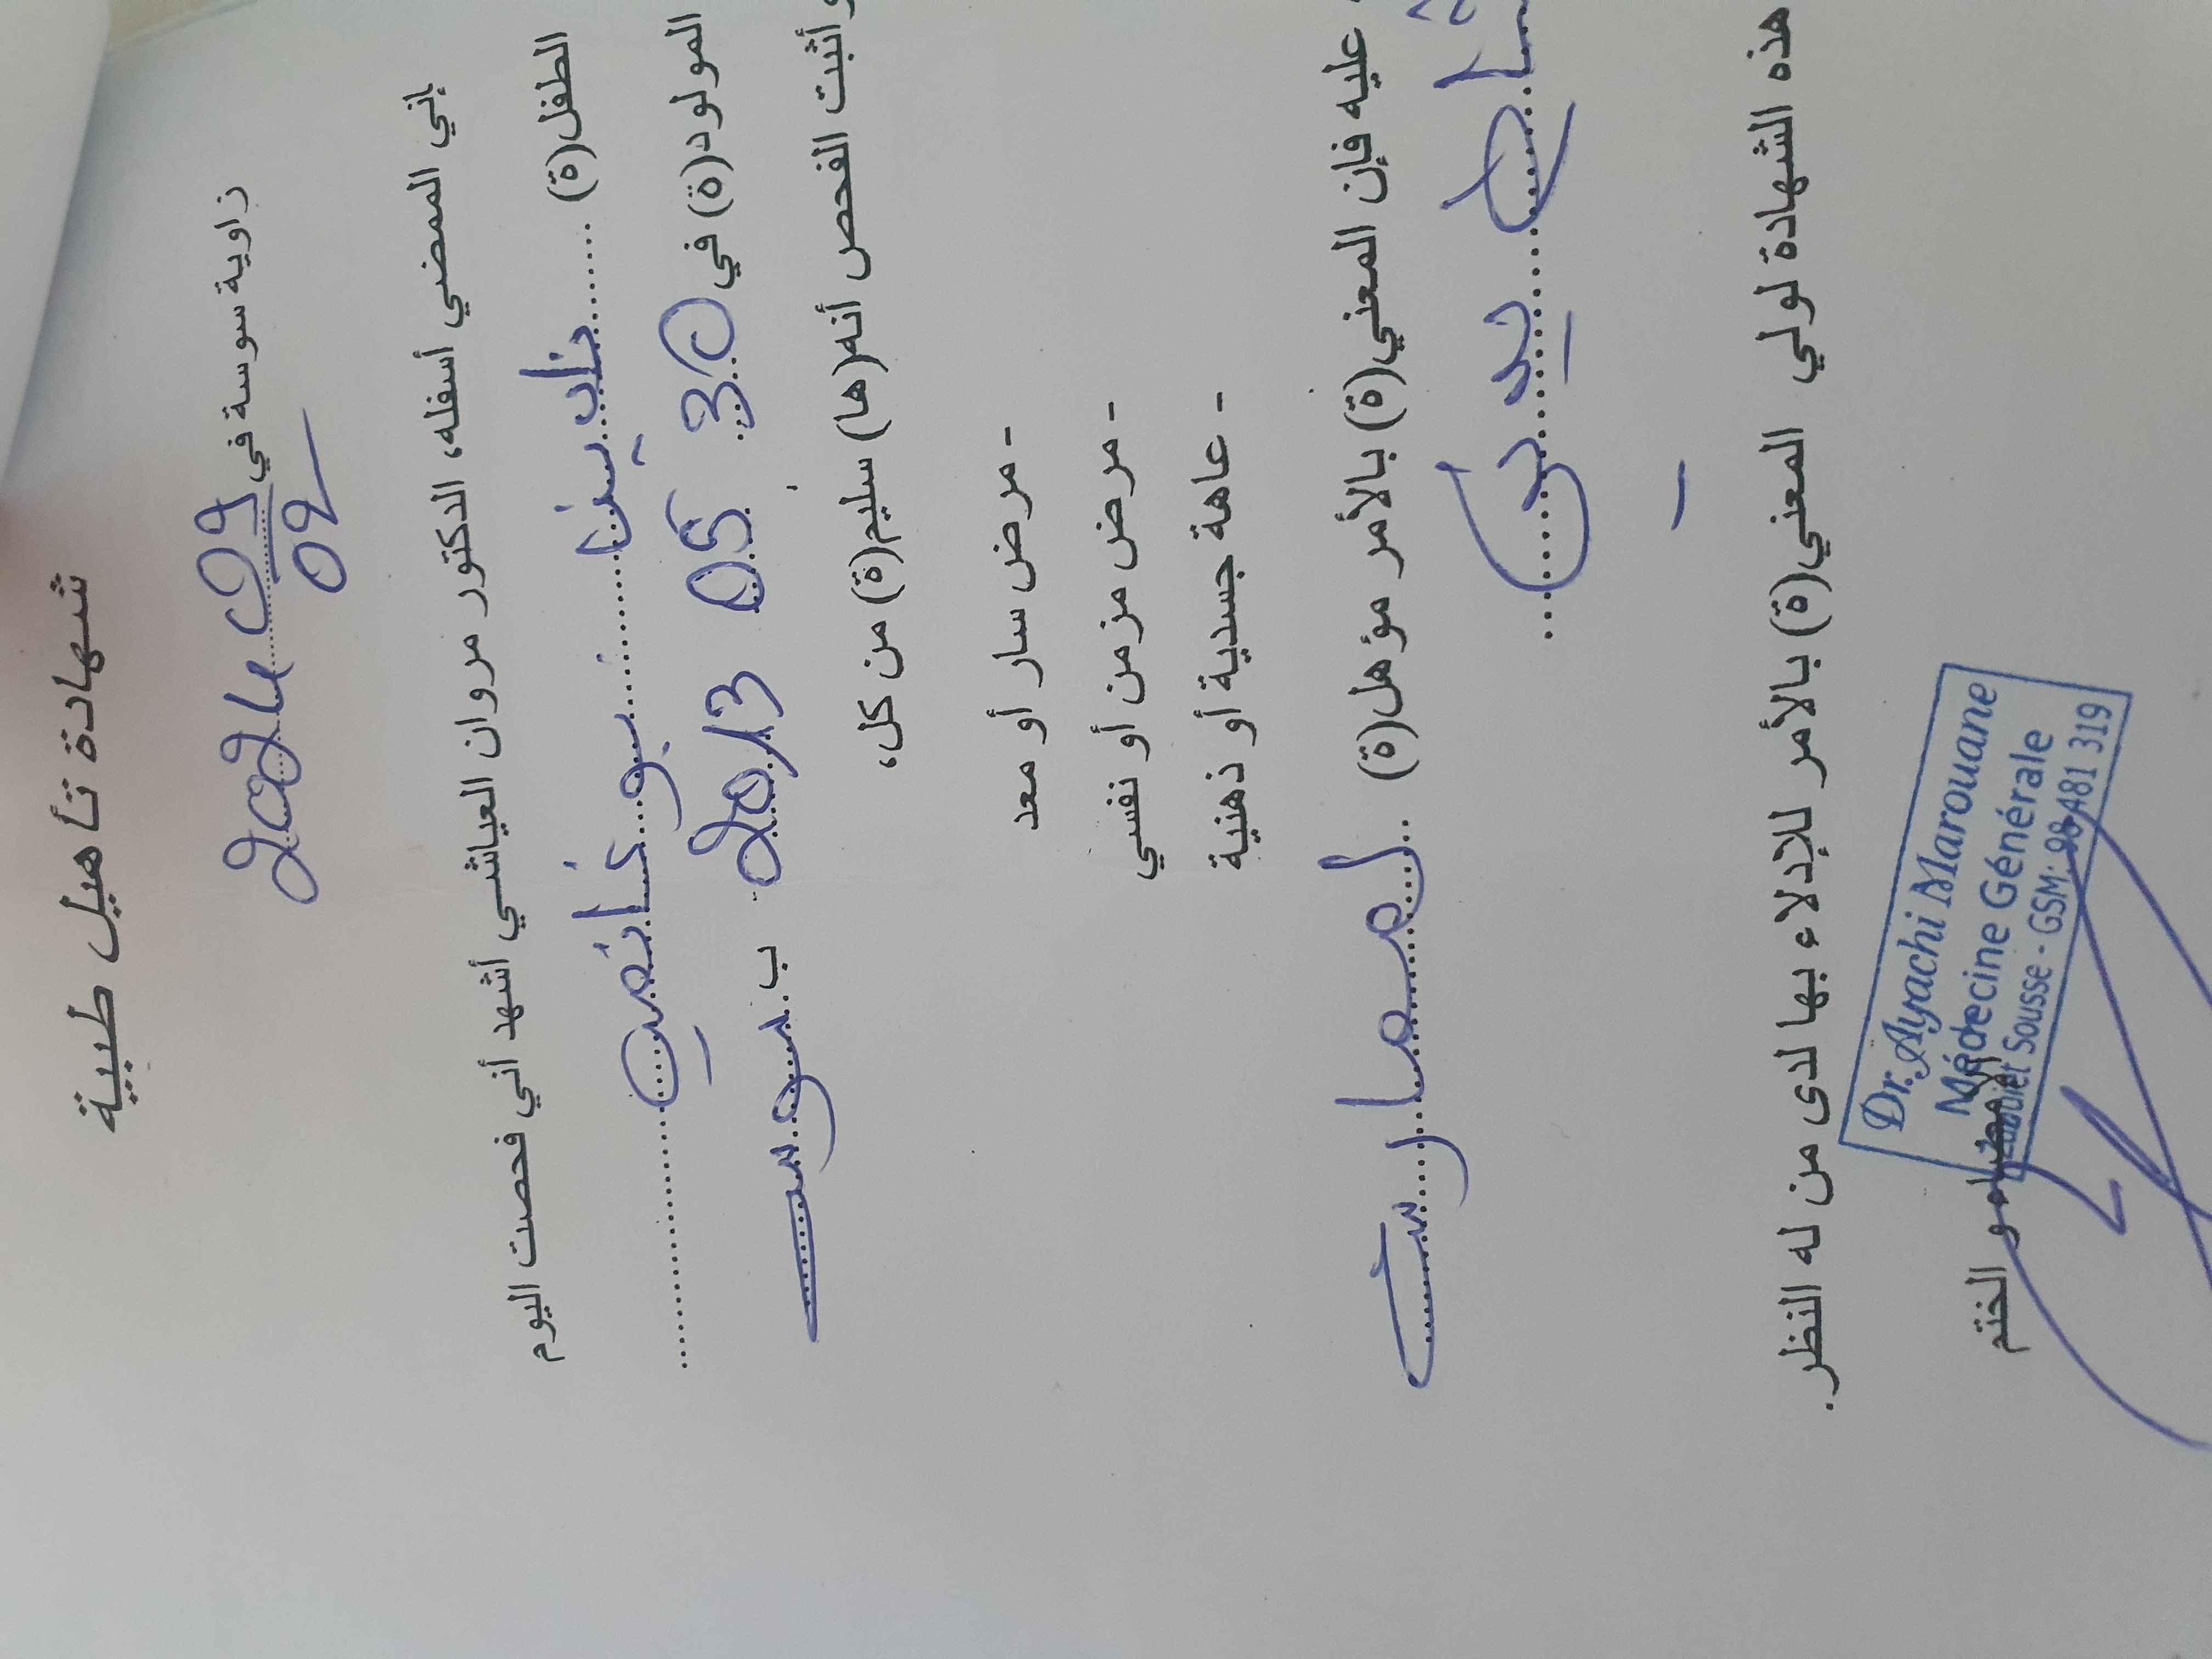 شهادة تأهيل طبية
زاوية سوسة في 29 02 2024
إني الممضي أسفله، الدكتور مروان العياشي أشهد أني فحصت اليوم
الطفل(ة)
المولود(ة) في 30 05 2013 ب سوسة
وأثبت الفحص أنه(ها) سليم(ة) من كل،
- مرض سار أو معد
- مرض مزمن أو نفسي
- عاهة جسدية أو ذهنية
عليه فإن المعني(ة) بالأمر مؤهل(ة) لممارسة
هذه الشهادة لولي المعني(ة) بالأمر للإدلاء بها لدى من له النظر.
الإمضاء و الختم
Dr. Ayachi Marouane
Médecine Générale
Zaouiet Sousse - GSM: 98 481 319